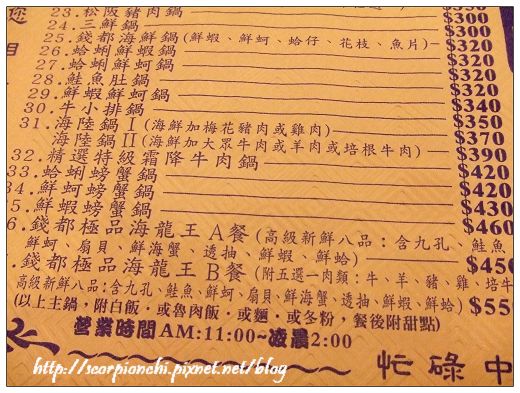 23.松阪豬肉鍋 $300
24.三鮮鍋 $300
25.錢都海鮮鍋(鮮蝦、鮮蚵、蛤仔、花枝、魚片) $320
26.蛤蜊鮮蝦鍋 $320
27.蛤蜊鮮蚵鍋 $320
28.鮭魚肚鍋 $320
29.鮮蝦鮮蚵鍋 $340
30.牛小排鍋 $350
31.海陸鍋I(海鮮加梅花豬肉或雞肉) $370
海陸鍋II(海鮮加大眾牛肉或羊肉或培根牛肉) $390
32.精選特級霜降牛肉鍋 $420
33.蛤蜊螃蟹鍋 $420
34.鮮蚵螃蟹鍋 $430
35.鮮蝦螃蟹鍋 $460
6.錢都極品海龍王A餐(高級新鮮八品：含九孔、鮭魚
鮮蚵、扇貝、鮮海蟹、透抽、鮮蝦、鮮蛤) $450
錢都極品海龍王B餐(附五選一肉類：牛、羊、豬、雞、培牛
高級新鮮八品:含九孔、鮭魚、鮮蚵、扇貝、鮮海蟹、透抽、鮮蝦、鮮蛤) $55
(以上主鍋，附白飯．或魯肉飯．或麵．或冬粉，餐後附甜點)
營業時間AM:11:00~凌晨2:00
忙碌中
http://scorpionchi.pixnet.net/blog